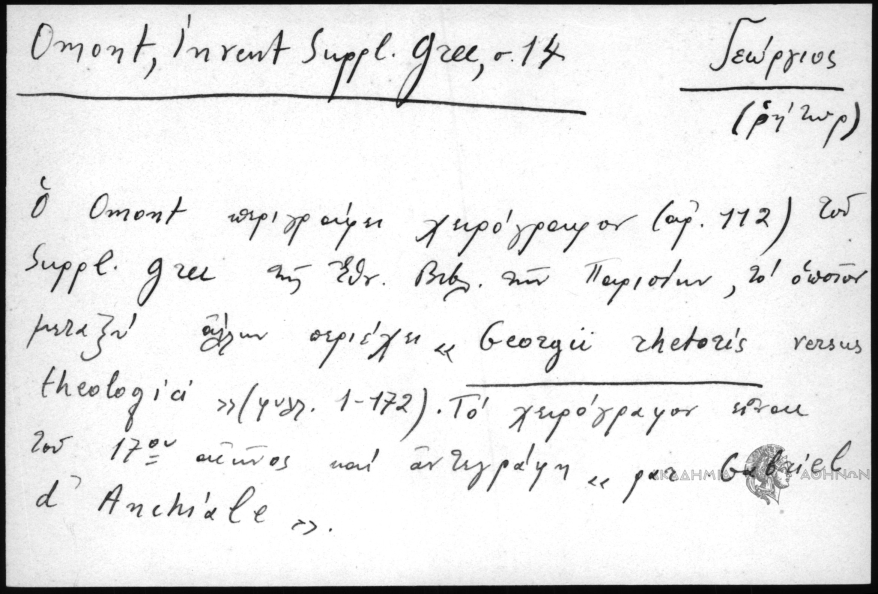 Omont, Invent Suppl. Grec, σ. 14
Γεώργιος
(ῥήτωρ)
Ὁ Omont περιγράφει χειρόγραφον (ἀρ. 112) τοῦ
Suppl. Grec τῆς Ἐθν. Βιβλ. τῶν Παρισίων, τό ὁποῖον
μεταξύ ἄλλων περιέχει « Georgii rhetoris versus
theologici » (φυλλ. 1-172). Τό χειρόγραφον εἶναι
τοῦ 17ου αἰῶνος καί ἀντεγράφη « par Gabriel
d' Anchiale ».
ΑΚΑΔΗΜΙΑ ΑΘΗΝΩΝ